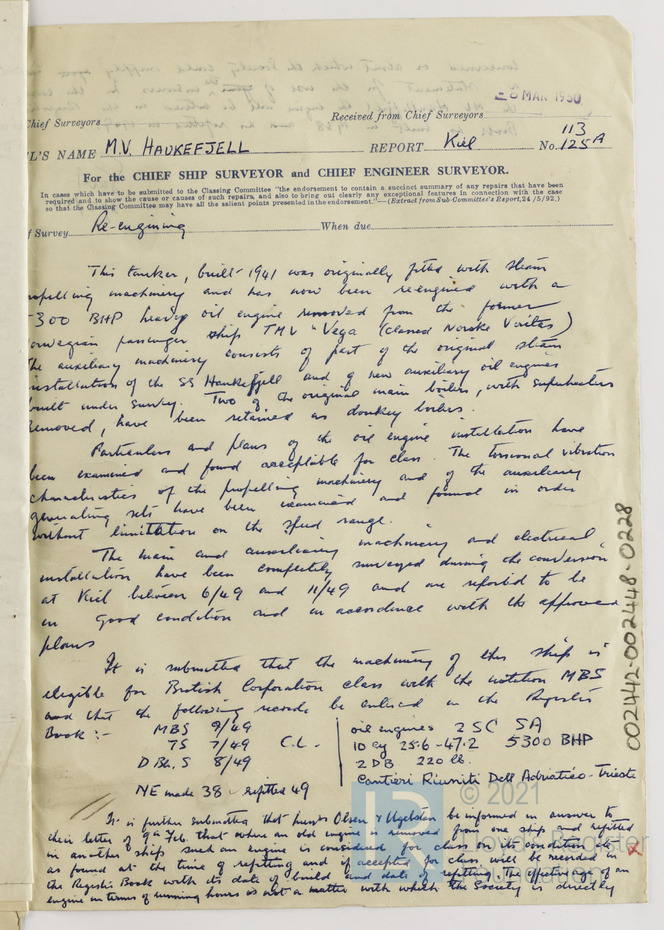 28 MAR 1950
Chief Surveyors
Received from Chief Surveyors
L'S NAME M.V. HAUKEFJELL REPORT Kiel No. 113
125A
For the CHIEF SHIP SURVEYOR and CHIEF ENGINEER SURVEYOR.
In cases which have to be submitted to the Classing Committee "the endorsement to contain a succinct summary of any repairs that have been
required and to show the cause or causes of such repairs, and also to bring out clearly any exceptional features in connection with the case
so that the Classing Committee may have all the salient points presented in the endorsement."—(Extract from Sub-Committee's Report, 24/5/92.)
f Survey Re-engining When due
This tanker, built 1941 was originally fitted with steam
propelling machinery and has now been reengined with a
5300 BHP heavy oil engine removed from the former
Norwegian passenger ship TMV "Vega (classed Norske Veritas)
The auxiliary machinery consists of part of the original steam
installation of the SS Haukefjell and 4 new auxiliary oil engines
built under survey. Two of the original main boilers, with superheaters
removed, have been retained as donkey boilers.
Particulars and plans of the oil engine installation have
been examined and found acceptible for class. The torsional vibration
characteristics of the propelling machinery and of the auxiliary
generating sets have been examined and found in order
without limitation on the speed range.
The main and auxiliary machinery and electrical
installation have been completely surveyed during the conversion
at Kiel between 6/49 and 11/49 and are reported to be
in good condition and in accordance with the approved
plans
It is submitted that the machinery of this ship is
eligible for British Corporation class with the notation MBS
and that the following records be entered in the Register
Book :- MBS 9/49
TS 7/49 C.L.
D Bs. S 8/49
NE made 38 refitted 49
oil engines 2 SC SA
10 cy 25.6 - 47.2 5300 BHP
2 DB 220 lb.
Cantieri Riuniti Dell Adriatico - Trieste
It is further submitted that Olsen & Ugelstad be informed in answer to
their letter of 9th Feb. that where an old engine is removed from one ship and refitted
in another ship such an engine is considered for class on its condition
as found at the time of refitting and if accepted for class will be recorded in
the Register Book with its date of build and date of refitting. The effective age of an
engine in terms of running hours is not a matter with which the Society is directly
002442-002448-0228
© 2021
Lloyd's Register
Foundation